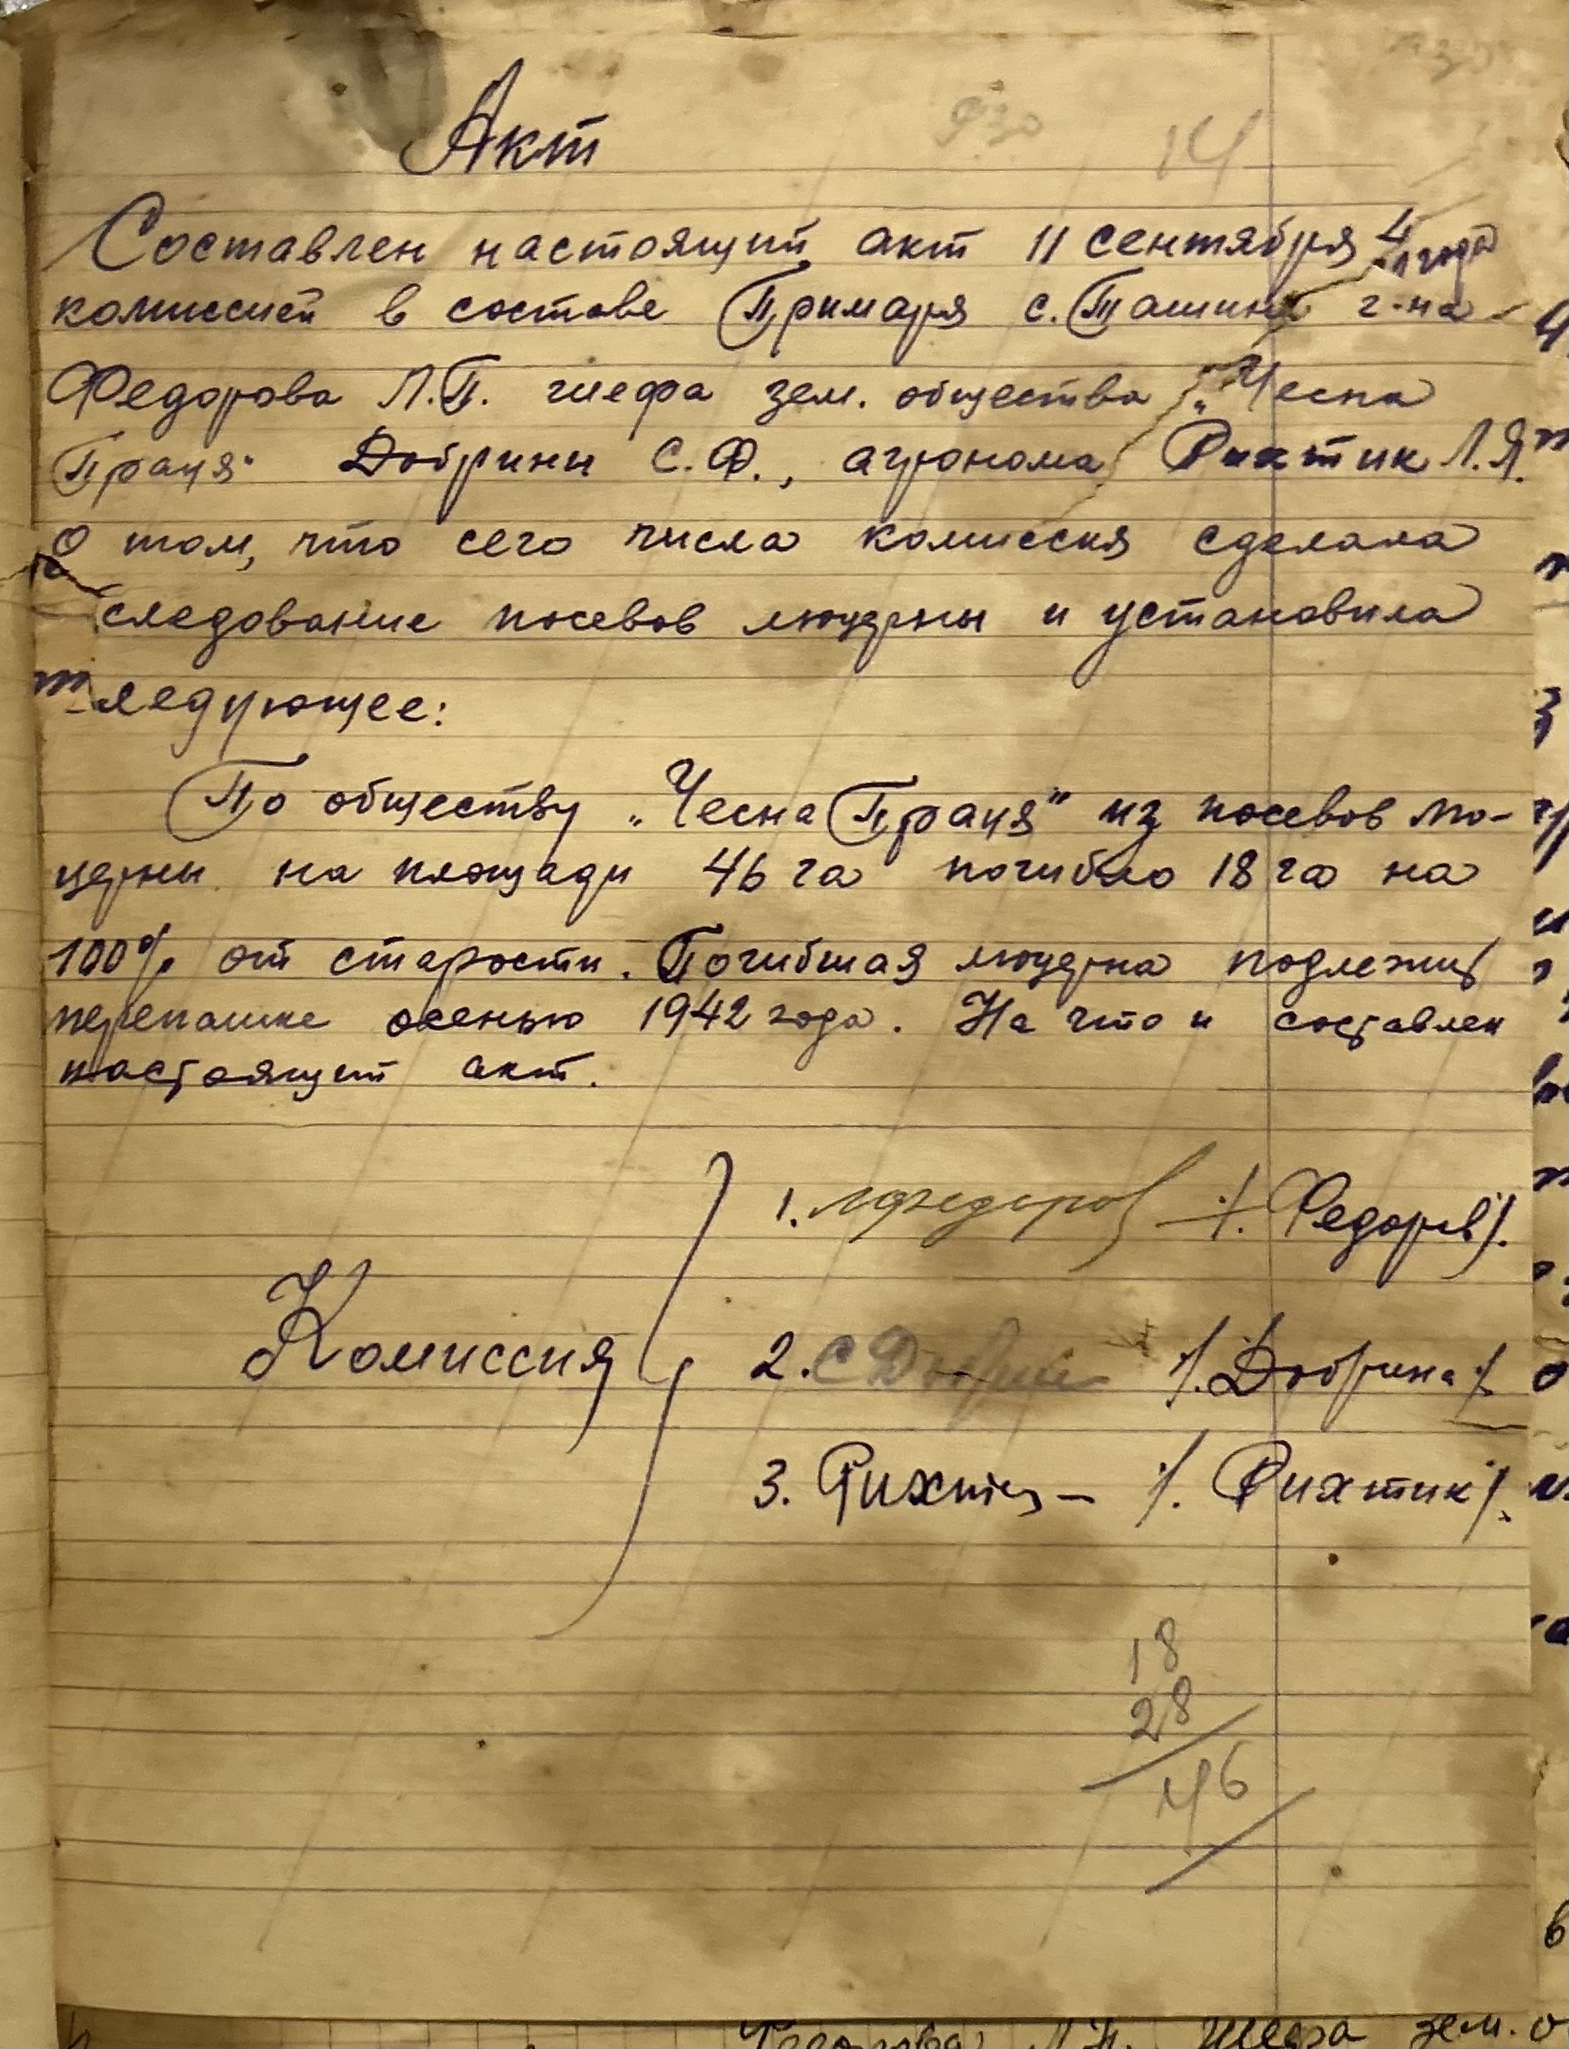 930
14
Акт
Составлен настоящий акт 11 сентября 4 года
комиссией в составе Примаря с. Ташино г-на
Федорова Л.П. шефа зем. общества „Чесна
Праця" Добрины С.Ф., агронома Рихтик Л.Я.
О том, что сего числа комиссия сделала
следование посевов люцерны и установила
ледующее:
По обществу „Чесна Праця" из посевов лю-
церны на площади 46 га погибло 18 га на
100% от старости. Погибшая люцерна подлежит
перепашке осенью 1942 года. На что и составлен
настоящий акт.
1. ЛФедоров /. Федоров/.
Комиссия 2. С Добрин /. Добрина/.
3. Рихтик /. Рихтик/.
18
28
46
Федорова Л.П. Шефа зем. о